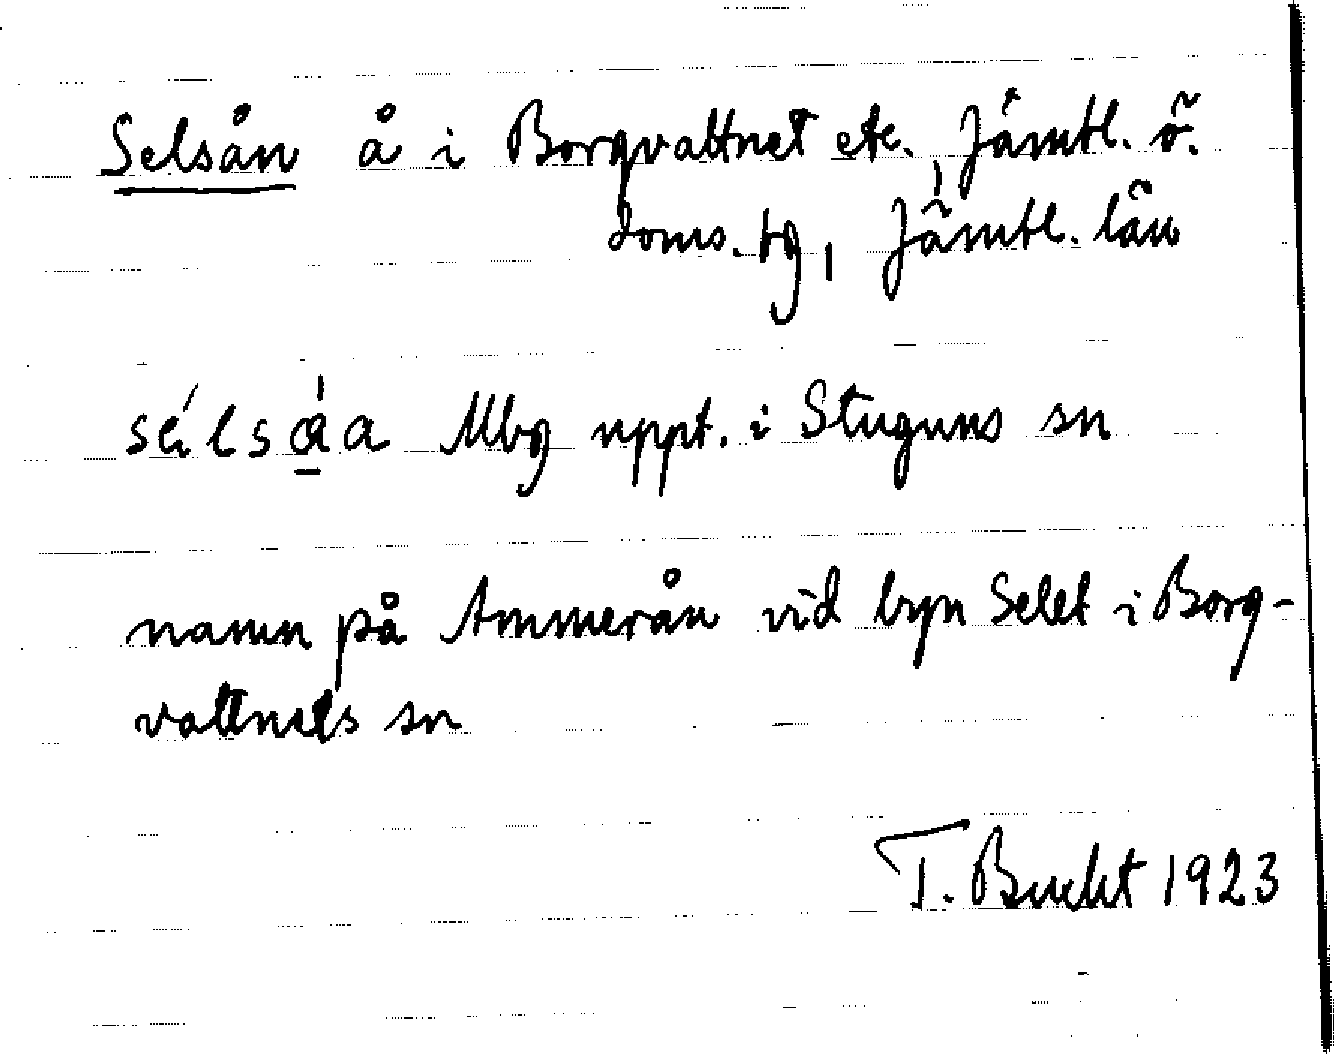 Selsån å i Borgvattnet etc., Jämtl. ö.
doms. tg, Jämtl. län
sélsåa Mbg uppt. i Stuguns sn
namn på Ammerån vid byn Selet i Borg-
vattnets sn
T. Bucht 1923